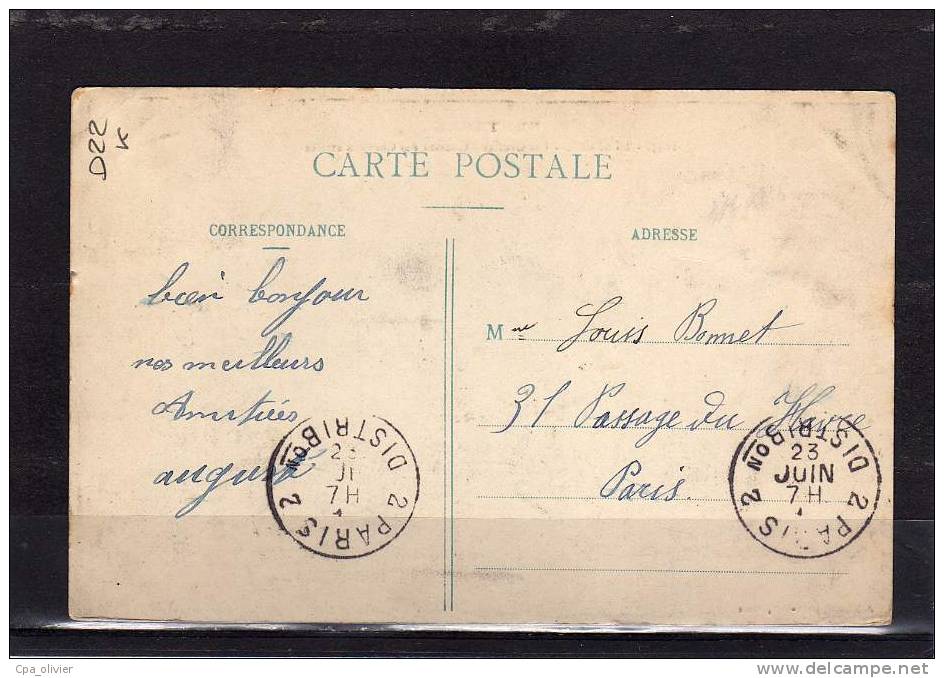 D22
K
CARTE POSTALE
CORRESPONDANCE
ADRESSE
bien bonjour
nos meilleurs
Amitiés
auguste
Mme Louis Bonnet
31 Passage du Havre
Paris.
2 PARIS 2 DISTRIBON
23
JI
7H
2 PARIS 2 DISTRIBON
23
JUIN
7H
Cpa_olivier
delcampe.net